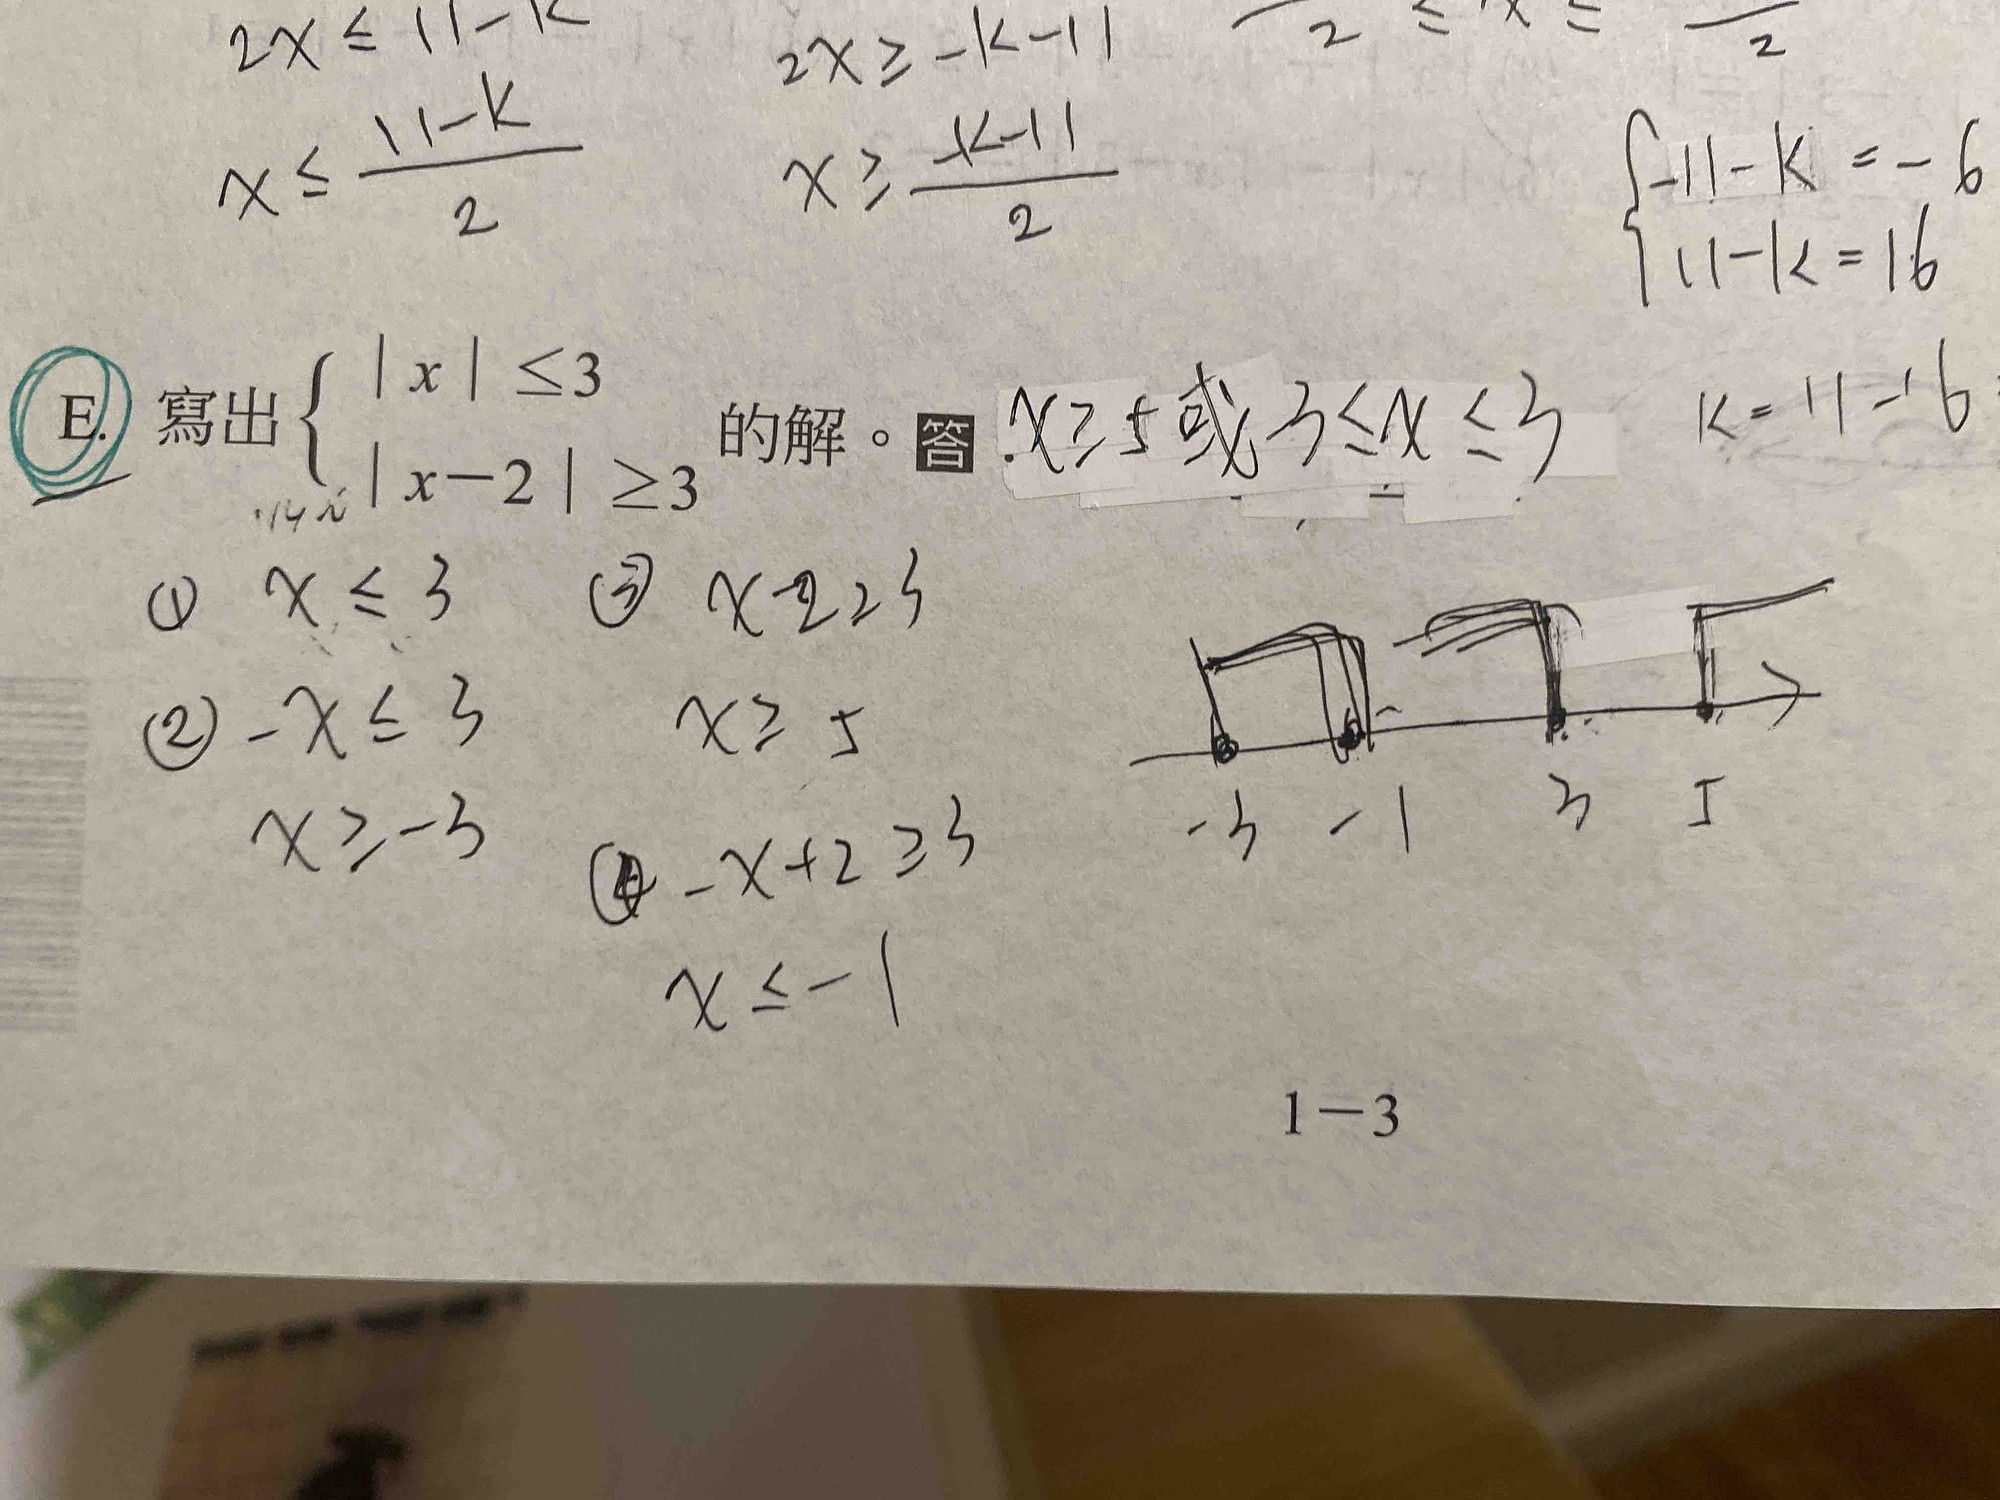 2x ≤ 11-k
2x ≥ -k-11
2 ≤ x ≤ 2
x ≤ 11-k / 2
x ≥ -k-11 / 2
{ -11-k = -6
11-k = 16
k = 11-16
E. 寫出 { |x| ≤3
|x-2| ≥3 的解。答 x ≥ 5 或 3 ≤ x ≤ 3
① x ≤ 3
② -x ≤ 3
x ≥ -3
③ x-2≥3
x ≥ 5
④ -x+2 ≥3
x ≤ -1
-3 -1 3 5
1-3